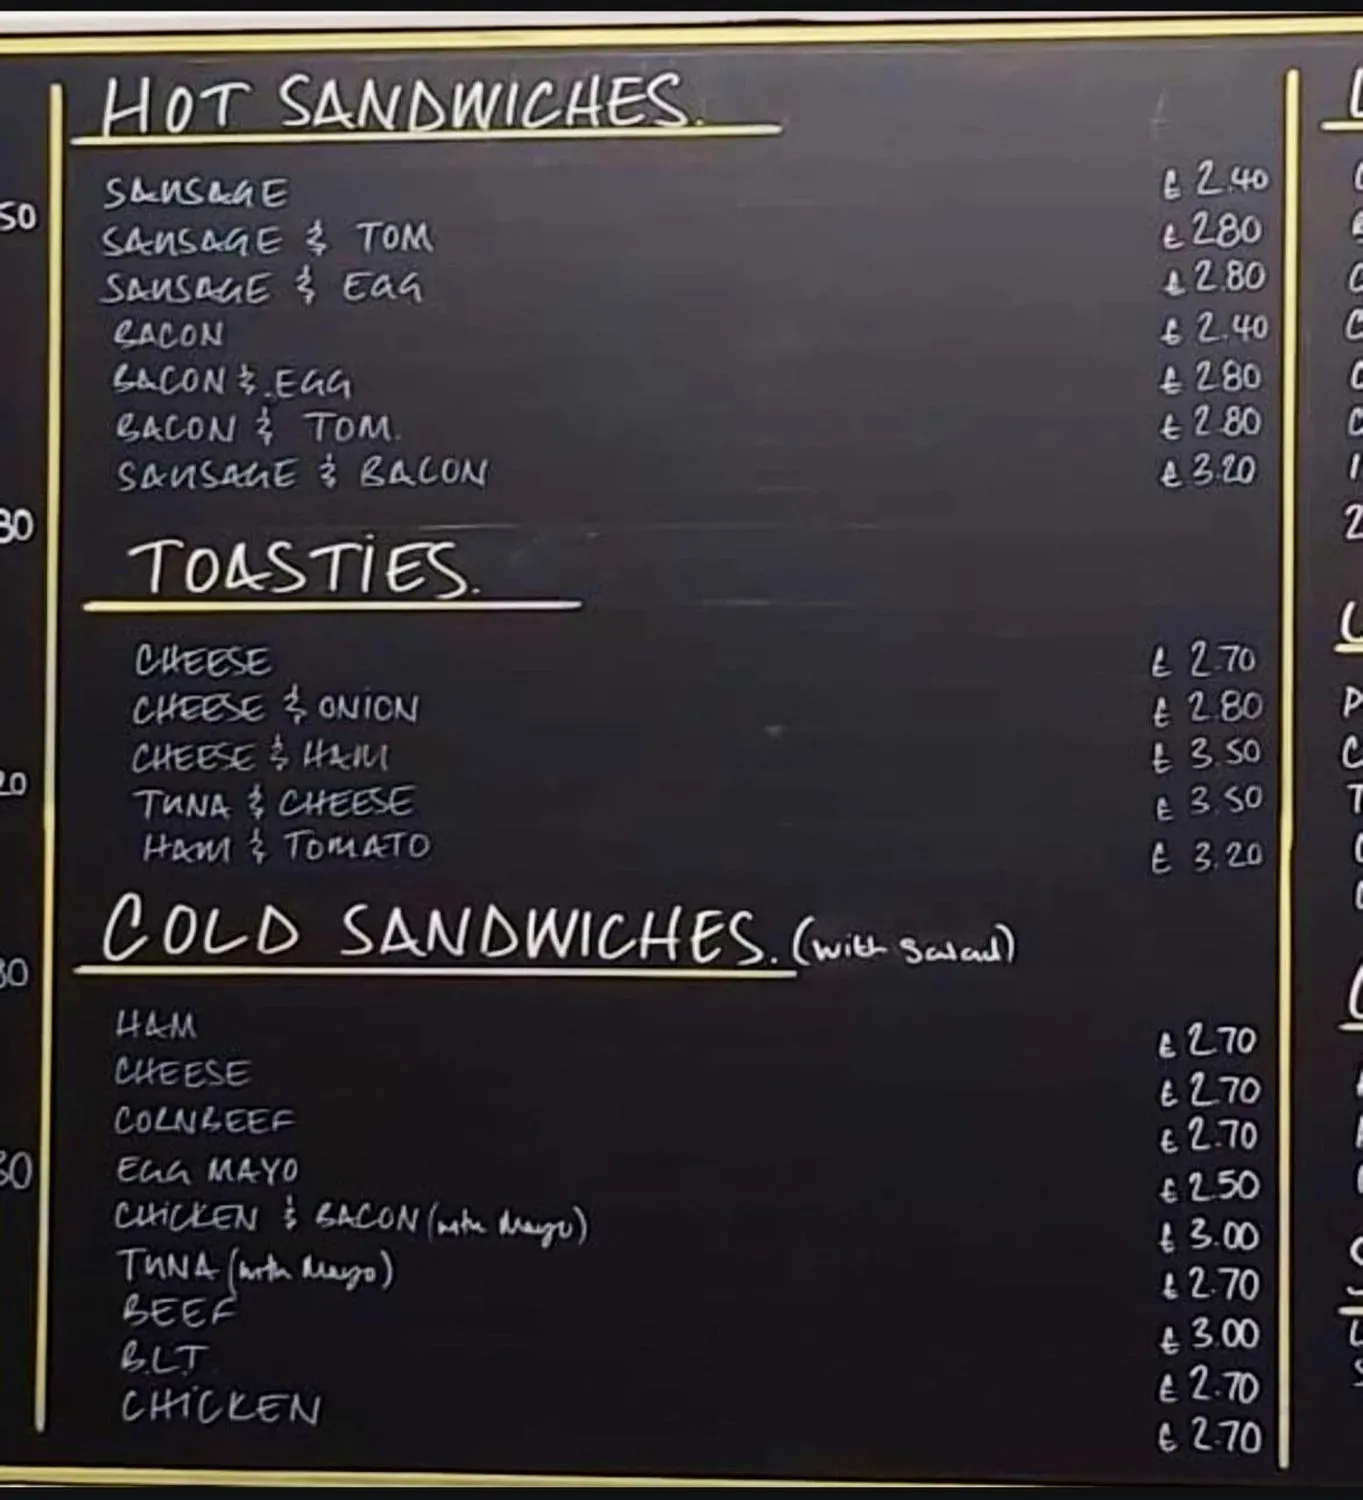 HOT SANDWICHES.
SAUSAGE £2.40
SAUSAGE & TOM £2.80
SAUSAGE & EGG £2.80
BACON £2.40
BACON & EGG £2.80
BACON & TOM. £2.80
SAUSAGE & BACON £3.20
TOASTIES.
CHEESE £2.70
CHEESE & ONION £2.80
CHEESE & HAM £3.50
TUNA & CHEESE £3.50
HAM & TOMATO £3.20
COLD SANDWICHES. (with salad)
HAM £2.70
CHEESE £2.70
CORNBEEF £2.70
EGG MAYO £2.50
CHICKEN & BACON (with Mayo) £3.00
TUNA (with Mayo) £2.70
BEEF £3.00
B.L.T £2.70
CHICKEN £2.70